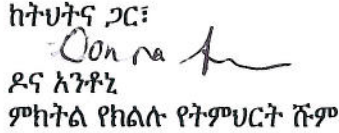 ከትህትና ጋር፣
Donna
ዶና አንቶኒ
ምክትል የክልሉ የትምህርት ሹም